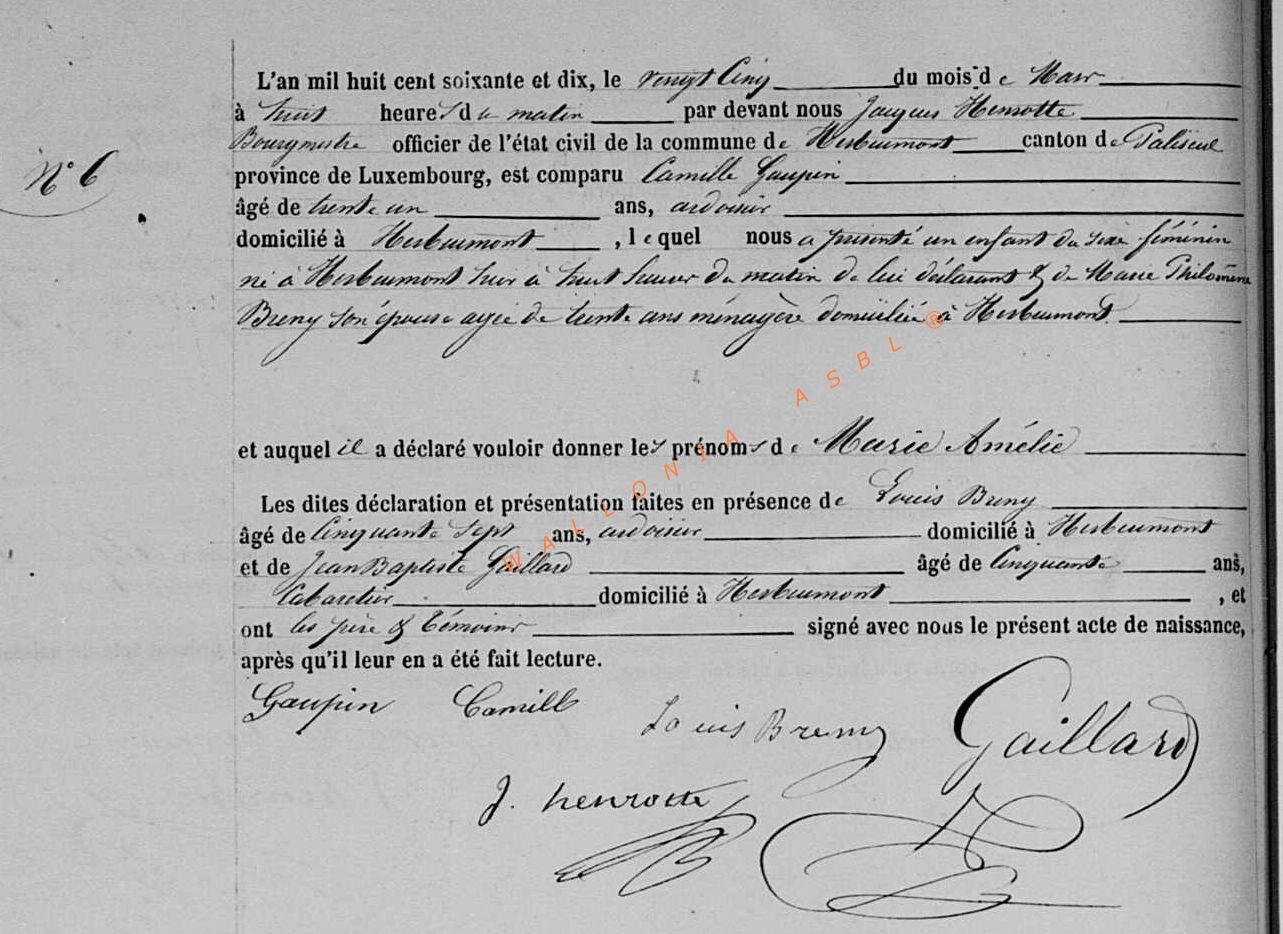 L'an mil huit cent soixante et dix, le vingt Cinq du mois de Mars
à huit heures du matin par devant nous Jacques Henrotte
Bourgmestre officier de l'état civil de la commune de Herbeumont canton de Paliseul
N° 6
province de Luxembourg, est comparu Camille Gaupin
âgé de trente un ans, ardoisier
domicilié à Herbeumont, lequel nous a présenté un enfant du sexe féminin
né à Herbeumont hier à huit heures du matin de lui déclarant & de Marie Philomène
Breny son épouse agée de trente ans ménagère domiciliée à Herbeumont
et auquel il a déclaré vouloir donner les prénoms de Marie Amélie
Les dites déclaration et présentation faites en présence de Louis Breny
âgé de Cinquante sept ans, ardoisier domicilié à Herbeumont
et de Jean Baptiste Gaillard âgé de Cinquante ans,
Cabaretier domicilié à Herbeumont, et
ont les père & témoins signé avec nous le présent acte de naissance,
après qu'il leur en a été fait lecture.
Gaupin Camill
Louis Breny
Gaillard
J. henrotte
WALLONIA ASBL ®